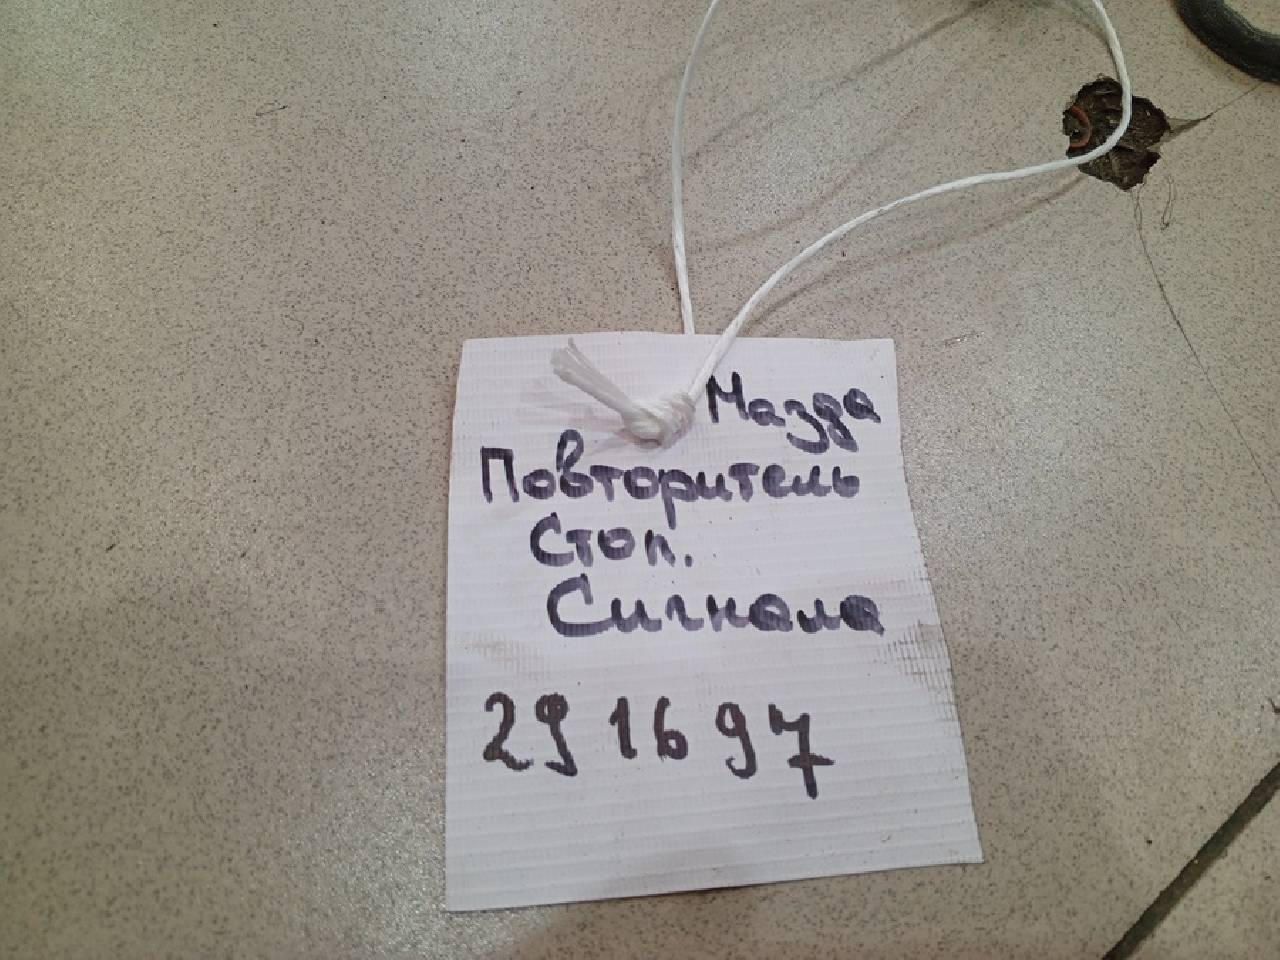 Мазда
Повторитель
Стоп.
Сигнала
29 16 97